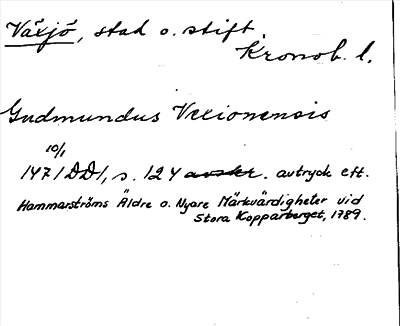 Växjö, stad o. stift
Kronob. l.
Gudmundus Vexionensis
10/1
1471 DD1, s. 124 avskr. avtryck eft.
Hammarströms Äldre o. Nyare Märkvärdigheter vid
Stora Kopparberget, 1789.